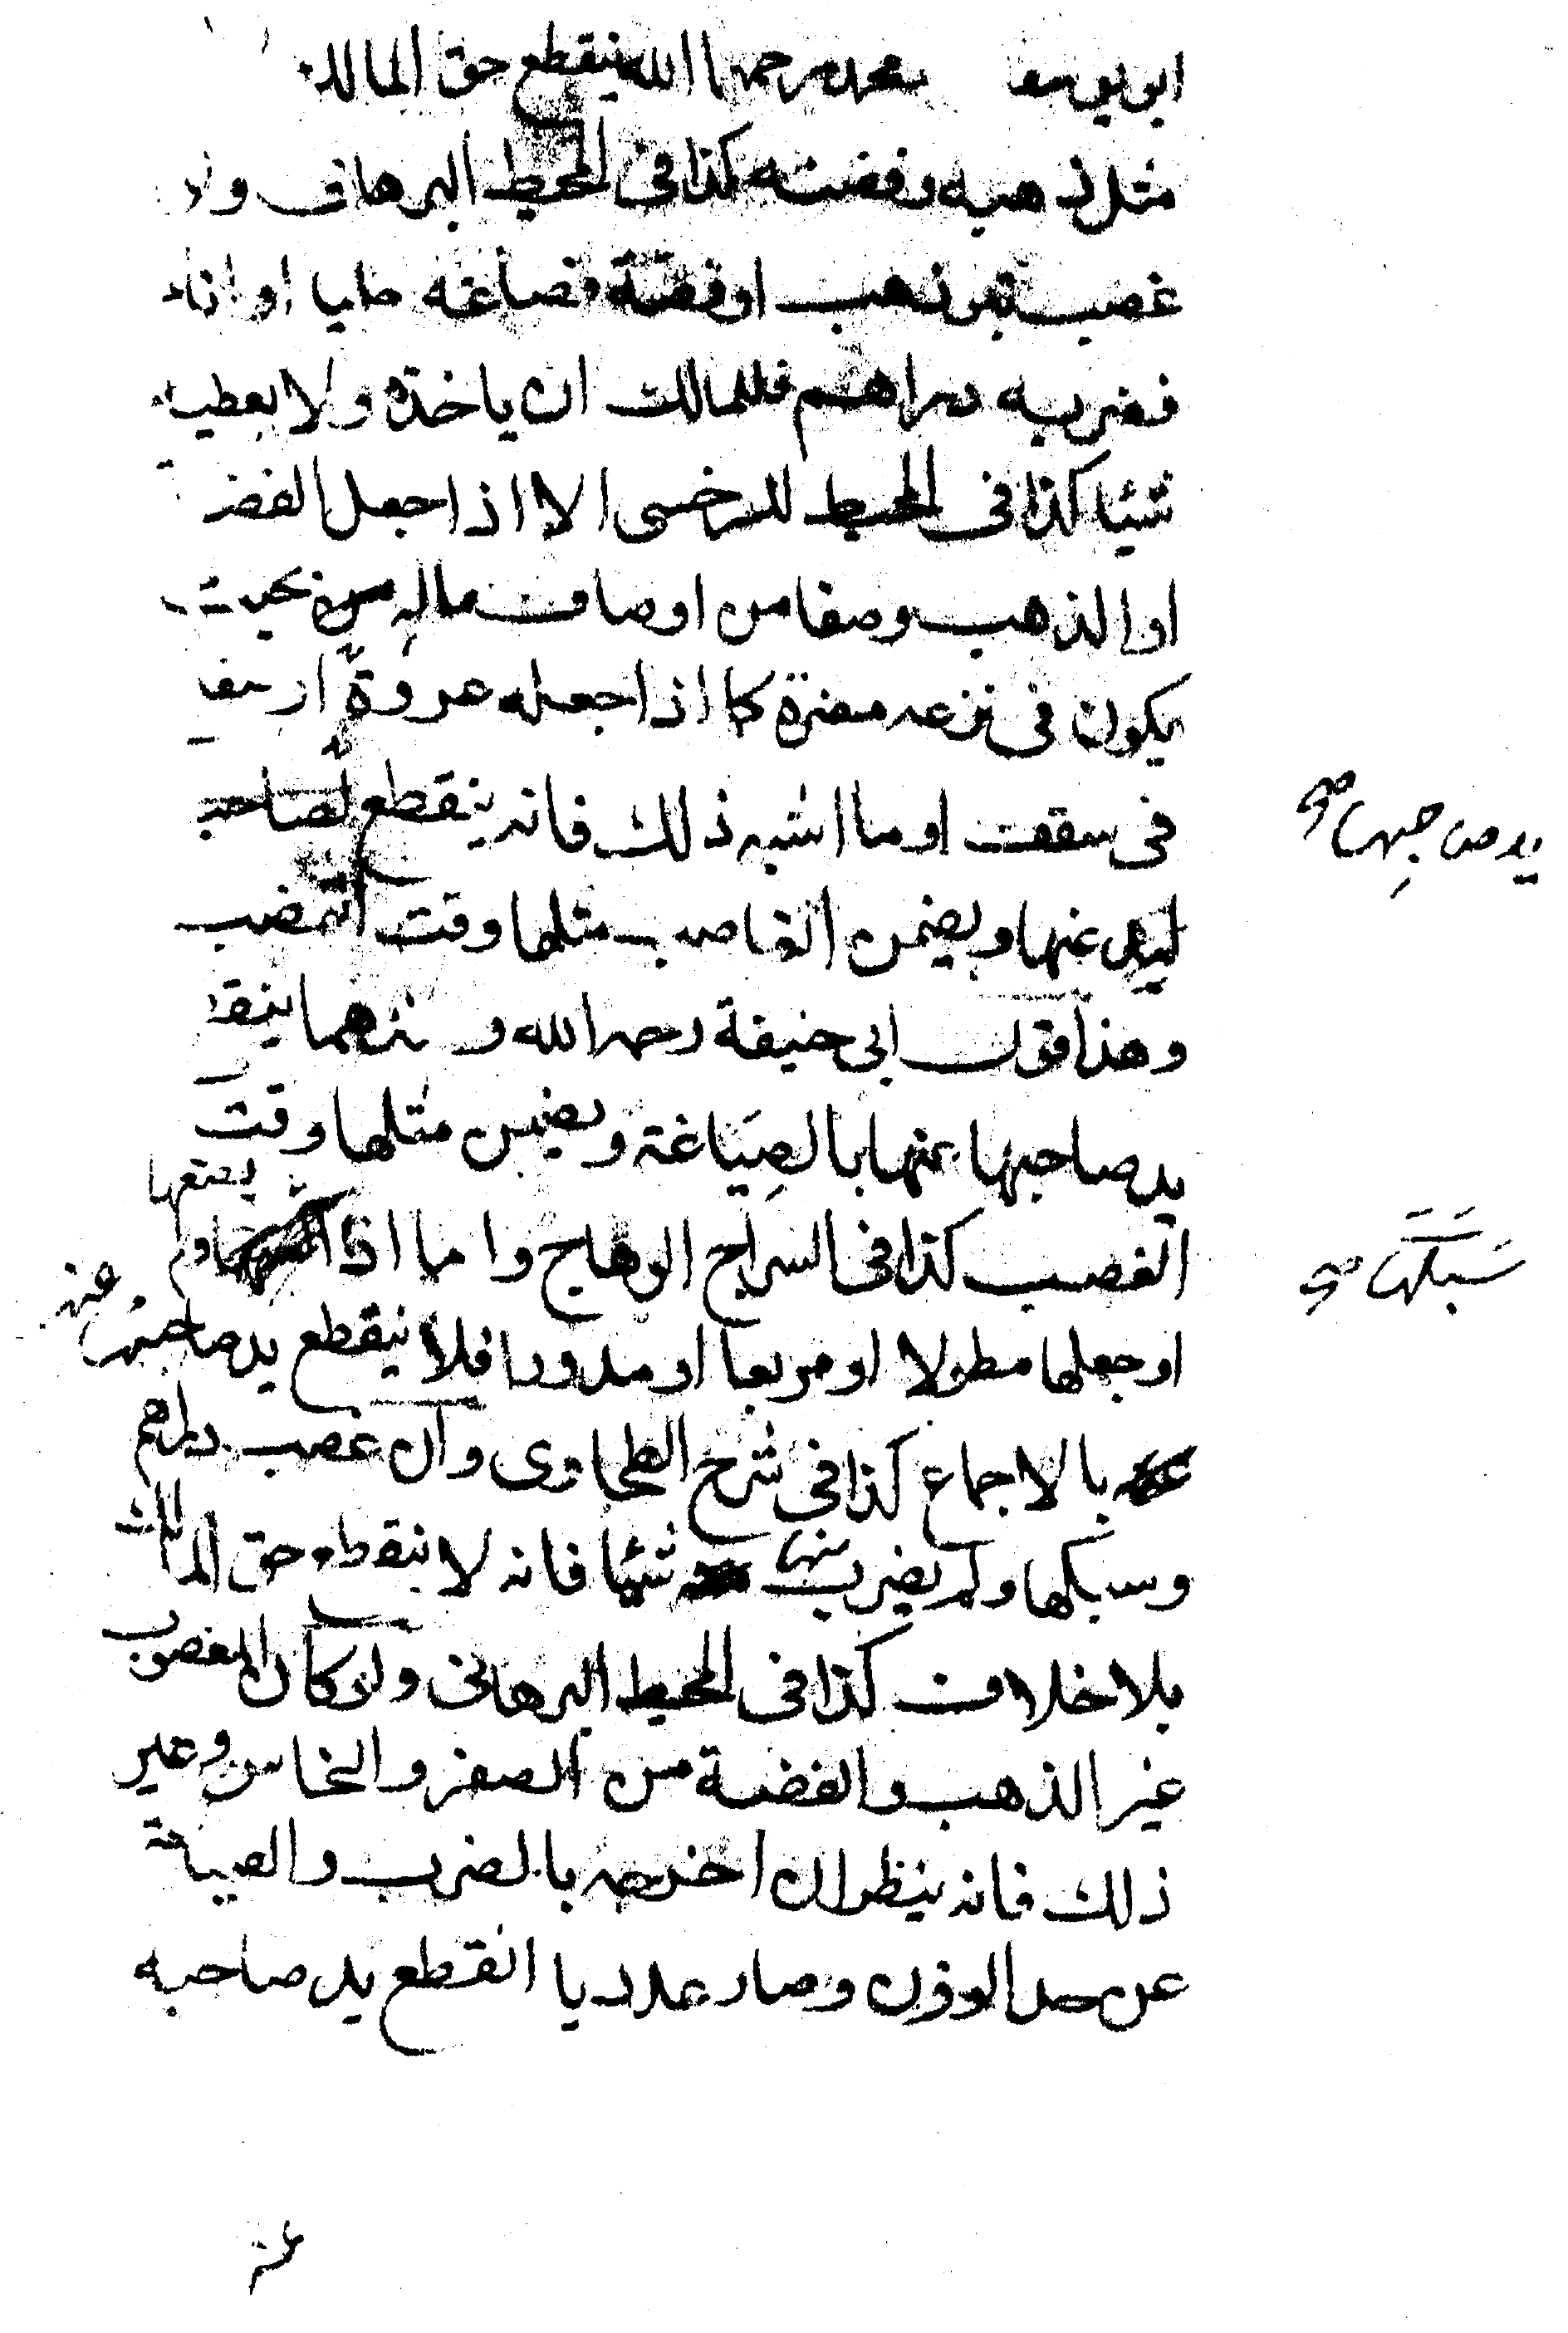 ابو يوسف ومحمد رحمهما الله ينقطع حق المالك
مثل ذهبه وفضته كذا فى المحيط البرهانى ولو
غصب تبر ذهب او فضة فصاغه حليا او اناء
فضربه دراهم فللمالك ان ياخذه ولا يعطيه
شيئا كذا فى المحيط للسرخسى الا اذا جعل الفضة
او الذهب وصفا من اوصاف ماله بحيث
يكون فى نزعه مضرة كما اذا جعله عروة او
فى سقف او ما اشبه ذلك فانه ينقطع
يد صاحبها صح
عنها ويضمن الغاصب مثلها وقت الغصب
وهذا قول ابى حنيفة رحمه الله و ينقطع
يد صاحبها عنها بالصياغة ويضمن مثلها وقت
الغصب كذا فى السراج الوهاج واما اذا ولم يصنعها
سبكها صح
او جعلها مطولا او مربعا او مدورا فلا ينقطع يد صاحبها عنه
بالاجماع كذا فى شرح الطحاوى وان غصب دراهم
وسبكها ولم يضرب منها شيئا فانه لا ينقطع حق المالك
بلا خلاف كذا فى المحيط البرهانى ولو كان المغصوب
غير الذهب والفضة من الصفر والنحاس وغير
ذلك فانه ينظر ان اخرجه بالضرب والصياغة
عن حد الوزن وصار عدديا انقطع يد صاحبه